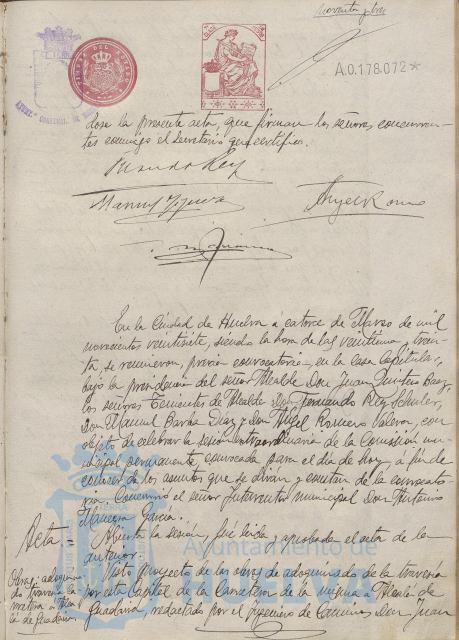 noventa y tres
A.0.178.072*
dose la presente acta, que firman los señores concurren-
tes conmigo el Secretario que certifico.
En la Ciudad de Huelva á catorce de Marzo de mil
novecientos veintisiete, siendo la hora de las veintiuna y trein-
ta, se reunieron, previa convocatoria, en la casa Capitular,
bajo la presidencia del señor Alcalde Don Juan Quintero Baez,
los señores Tenientes de Alcalde Don Fernando Rey
Don Manuel Barba Diaz y Don Angel Romero Valeron, con
objeto de celebrar la sesion extraordinaria de la Comisión mu-
nicipal permanente convocada para el dia de hoy, á fin de
conocer de los asuntos que se dirán y constan de la convocato-
ria. Concurrió el señor Interventor municipal Don Antonio
García.
Acta = Abierta la sesión, fué leida y aprobada el acta de la
anterior.
Visto proyecto de las obras de adoquinado de la travesía
por esta Capital de la Carretera de á Alcalá de
Guadaira, redactado por el Ingeniero de Caminos Don Juan
Ayuntamiento de
Huelva